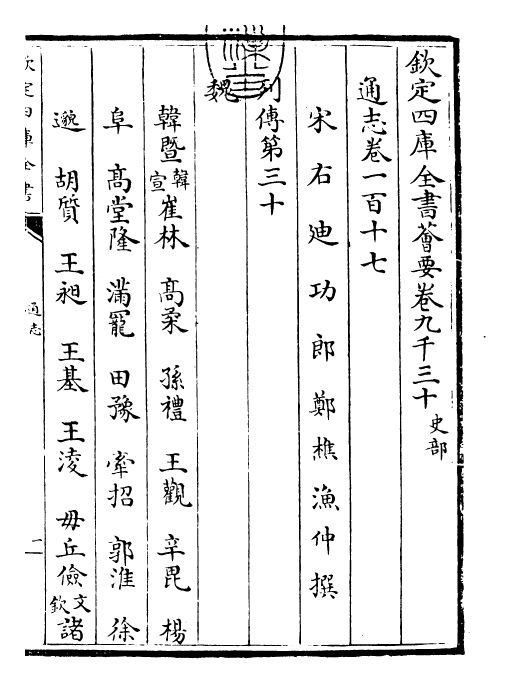 欽定四庫全書薈要卷九千三十 史部
通志卷一百十七
宋右迪功郎鄭樵漁仲撰
列傳第三十
魏
韓暨 韓宣 崔林 高柔 孫禮 王觀 辛毘 楊
阜 高堂隆 滿寵 田豫 牽招 郭淮 徐
邈 胡質 王昶 王基 王淩 毋丘儉 文欽 諸
欽定四庫全書
通志
二